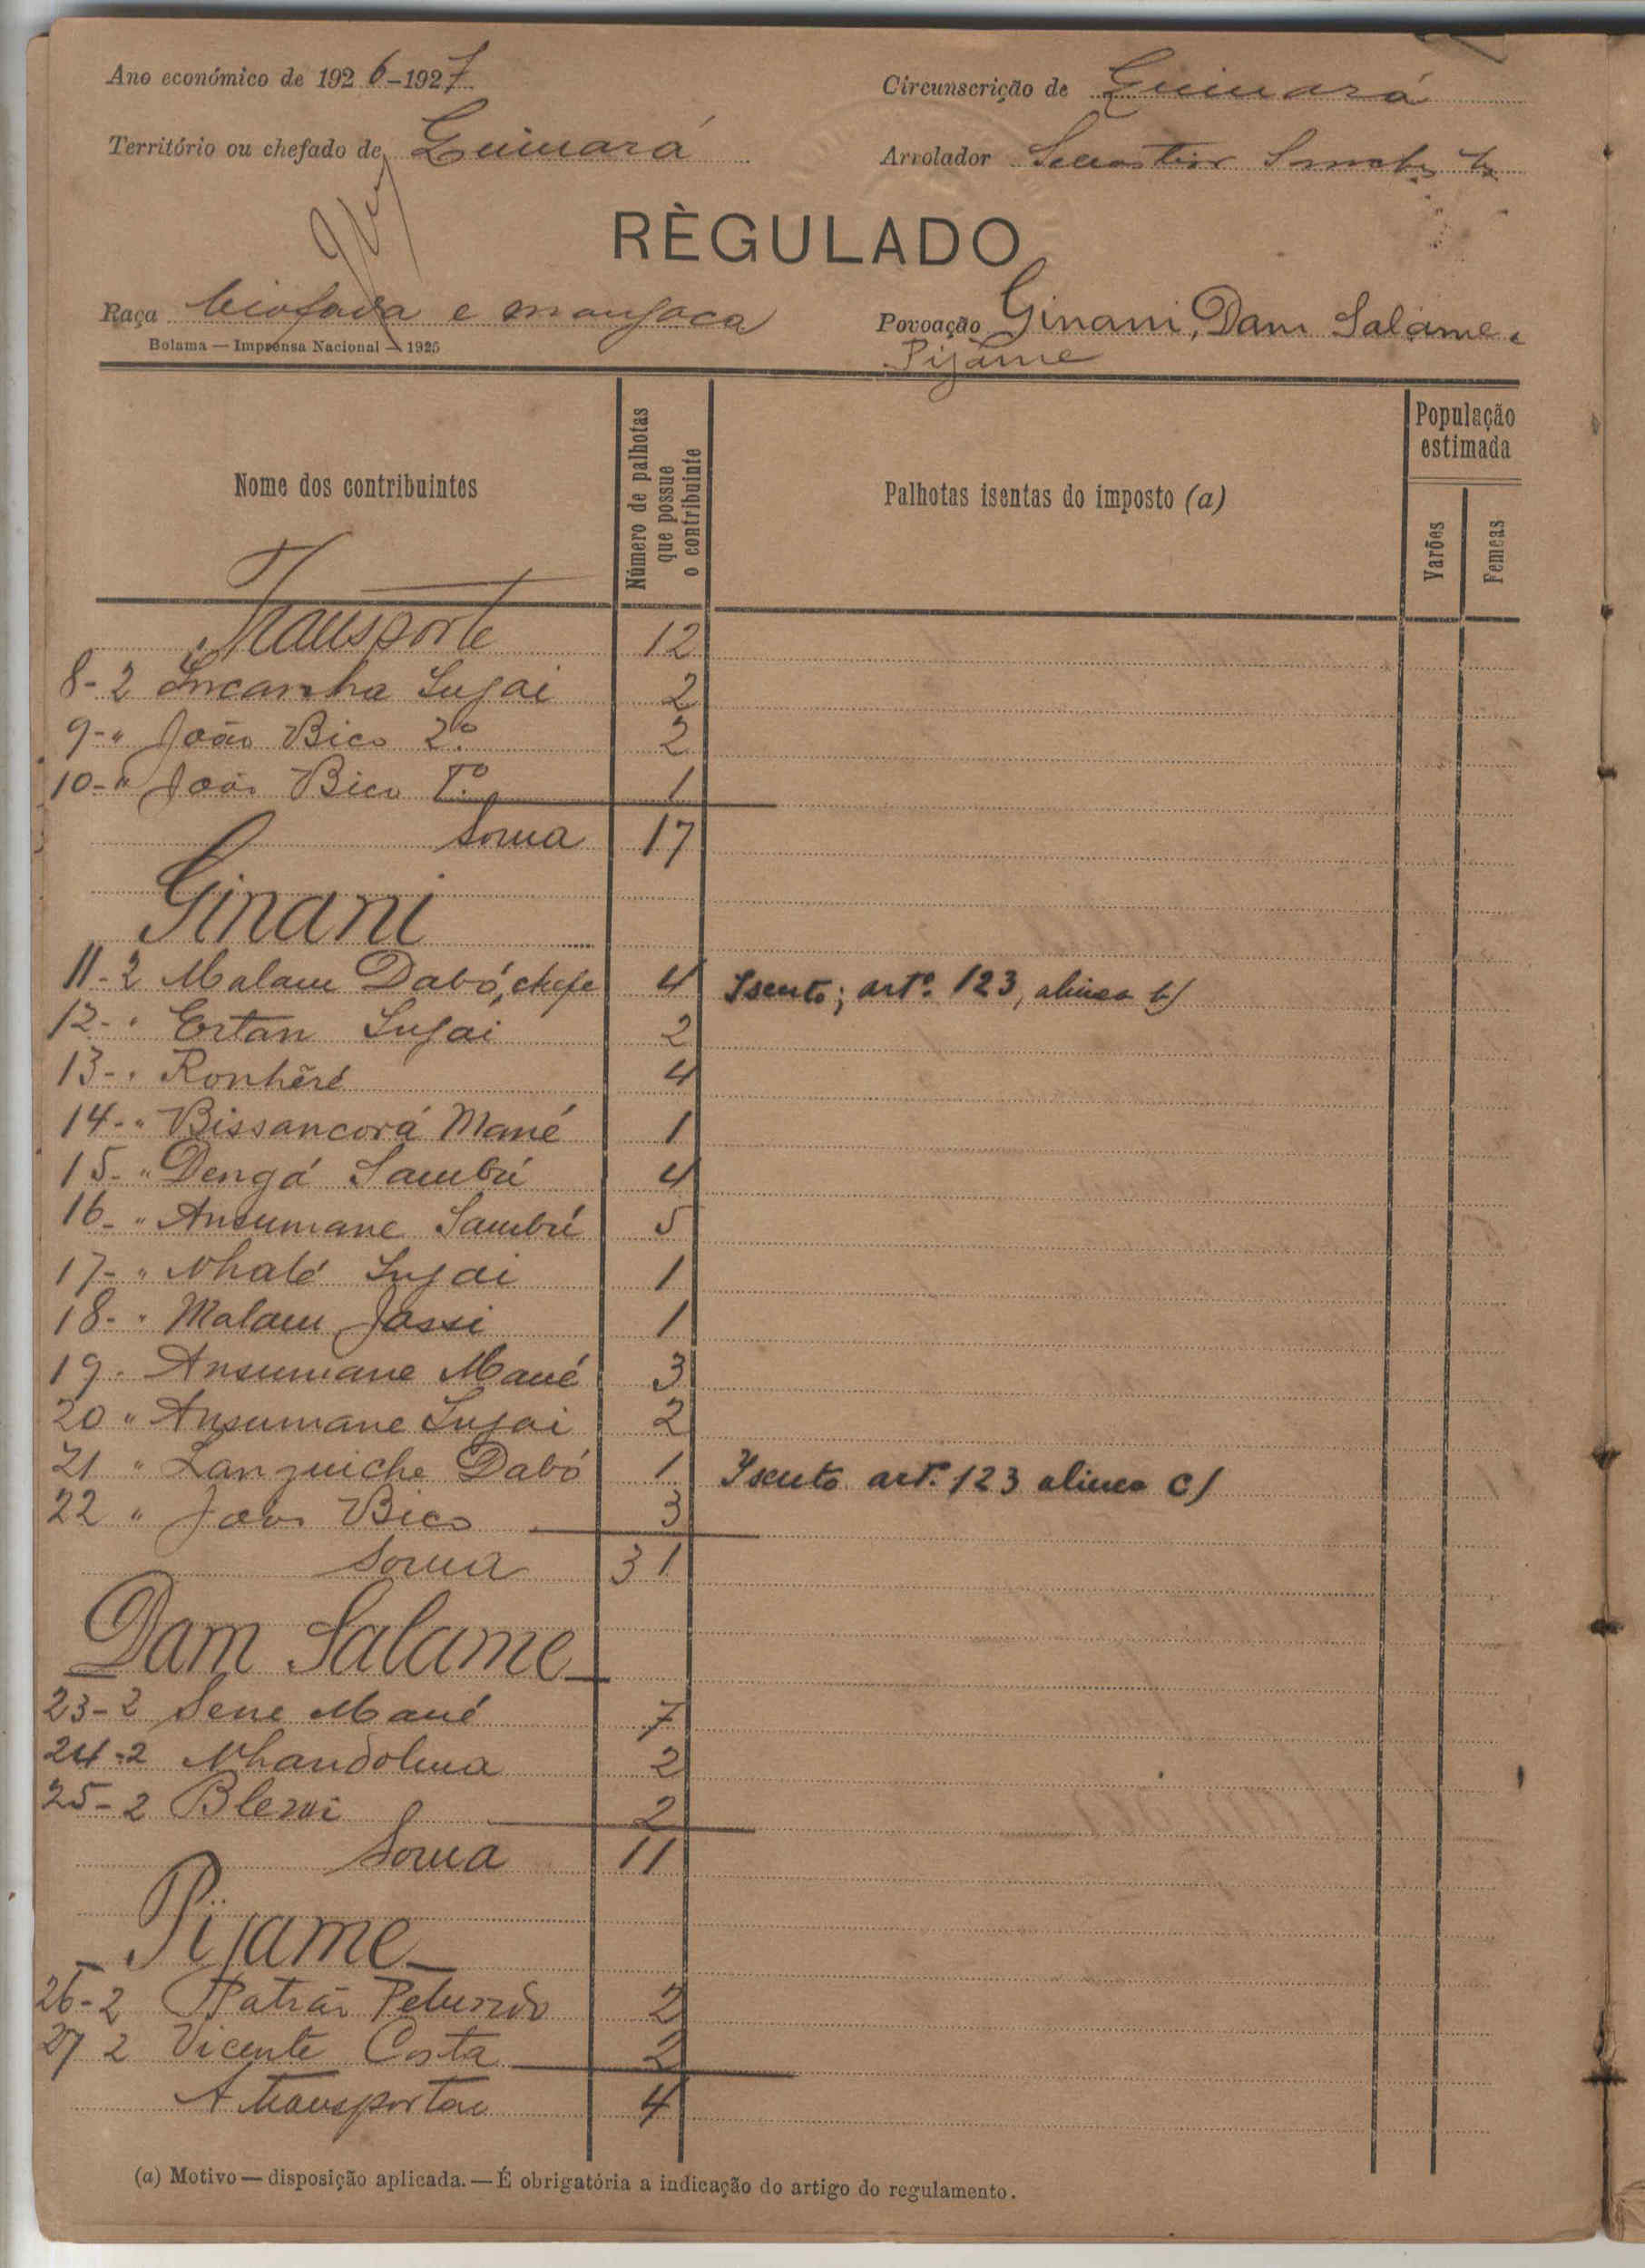 Ano económico de 1926-1927
Circunscrição de Guinará
Território ou chefado de Guinará
Arrolador
RÈGULADO
Raça biafada e manjaca
Povoação Ginani, Dam Salame,
Pijame
Bolama — Imprensa Nacional — 1925
Nome dos contribuintes
Número de palhotas que possue o contribuinte
Palhotas isentas do imposto (a)
População estimada
Varões
Femeas
Transporte 12
8-2 Incanha Sujai 2
9-" João Bico 2º 2
10-" João Bico 1º 1
Soma 17
Ginani
11-2 Malam Dabó, chefe 4 Isento; artº. 123, alinea b)
12-" Ertan Sujai 2
13-" Ronhêré 4
14-" Bissancorá Mané 1
15-" Dengá Sambú 4
16-" Ansumane Sambú 5
17-" Nhaló Sujai 1
18-" Malam Jassi 1
19-" Ansumane Mané 3
20 " Ansumane Sujai 2
21 " Languiche Dabó 1 Isento art. 123 alinea c)
22 " João Bico 3
Soma 31
Dam Salame
23-2 Sene Mané 7
24-2 Nhandolma 2
25-2 2
Soma 11
Pijame
26-2 Patrão 2
27 2 Vicente Costa 2
A transportar 4
(a) Motivo — disposição aplicada. — É obrigatória a indicação do artigo do regulamento.